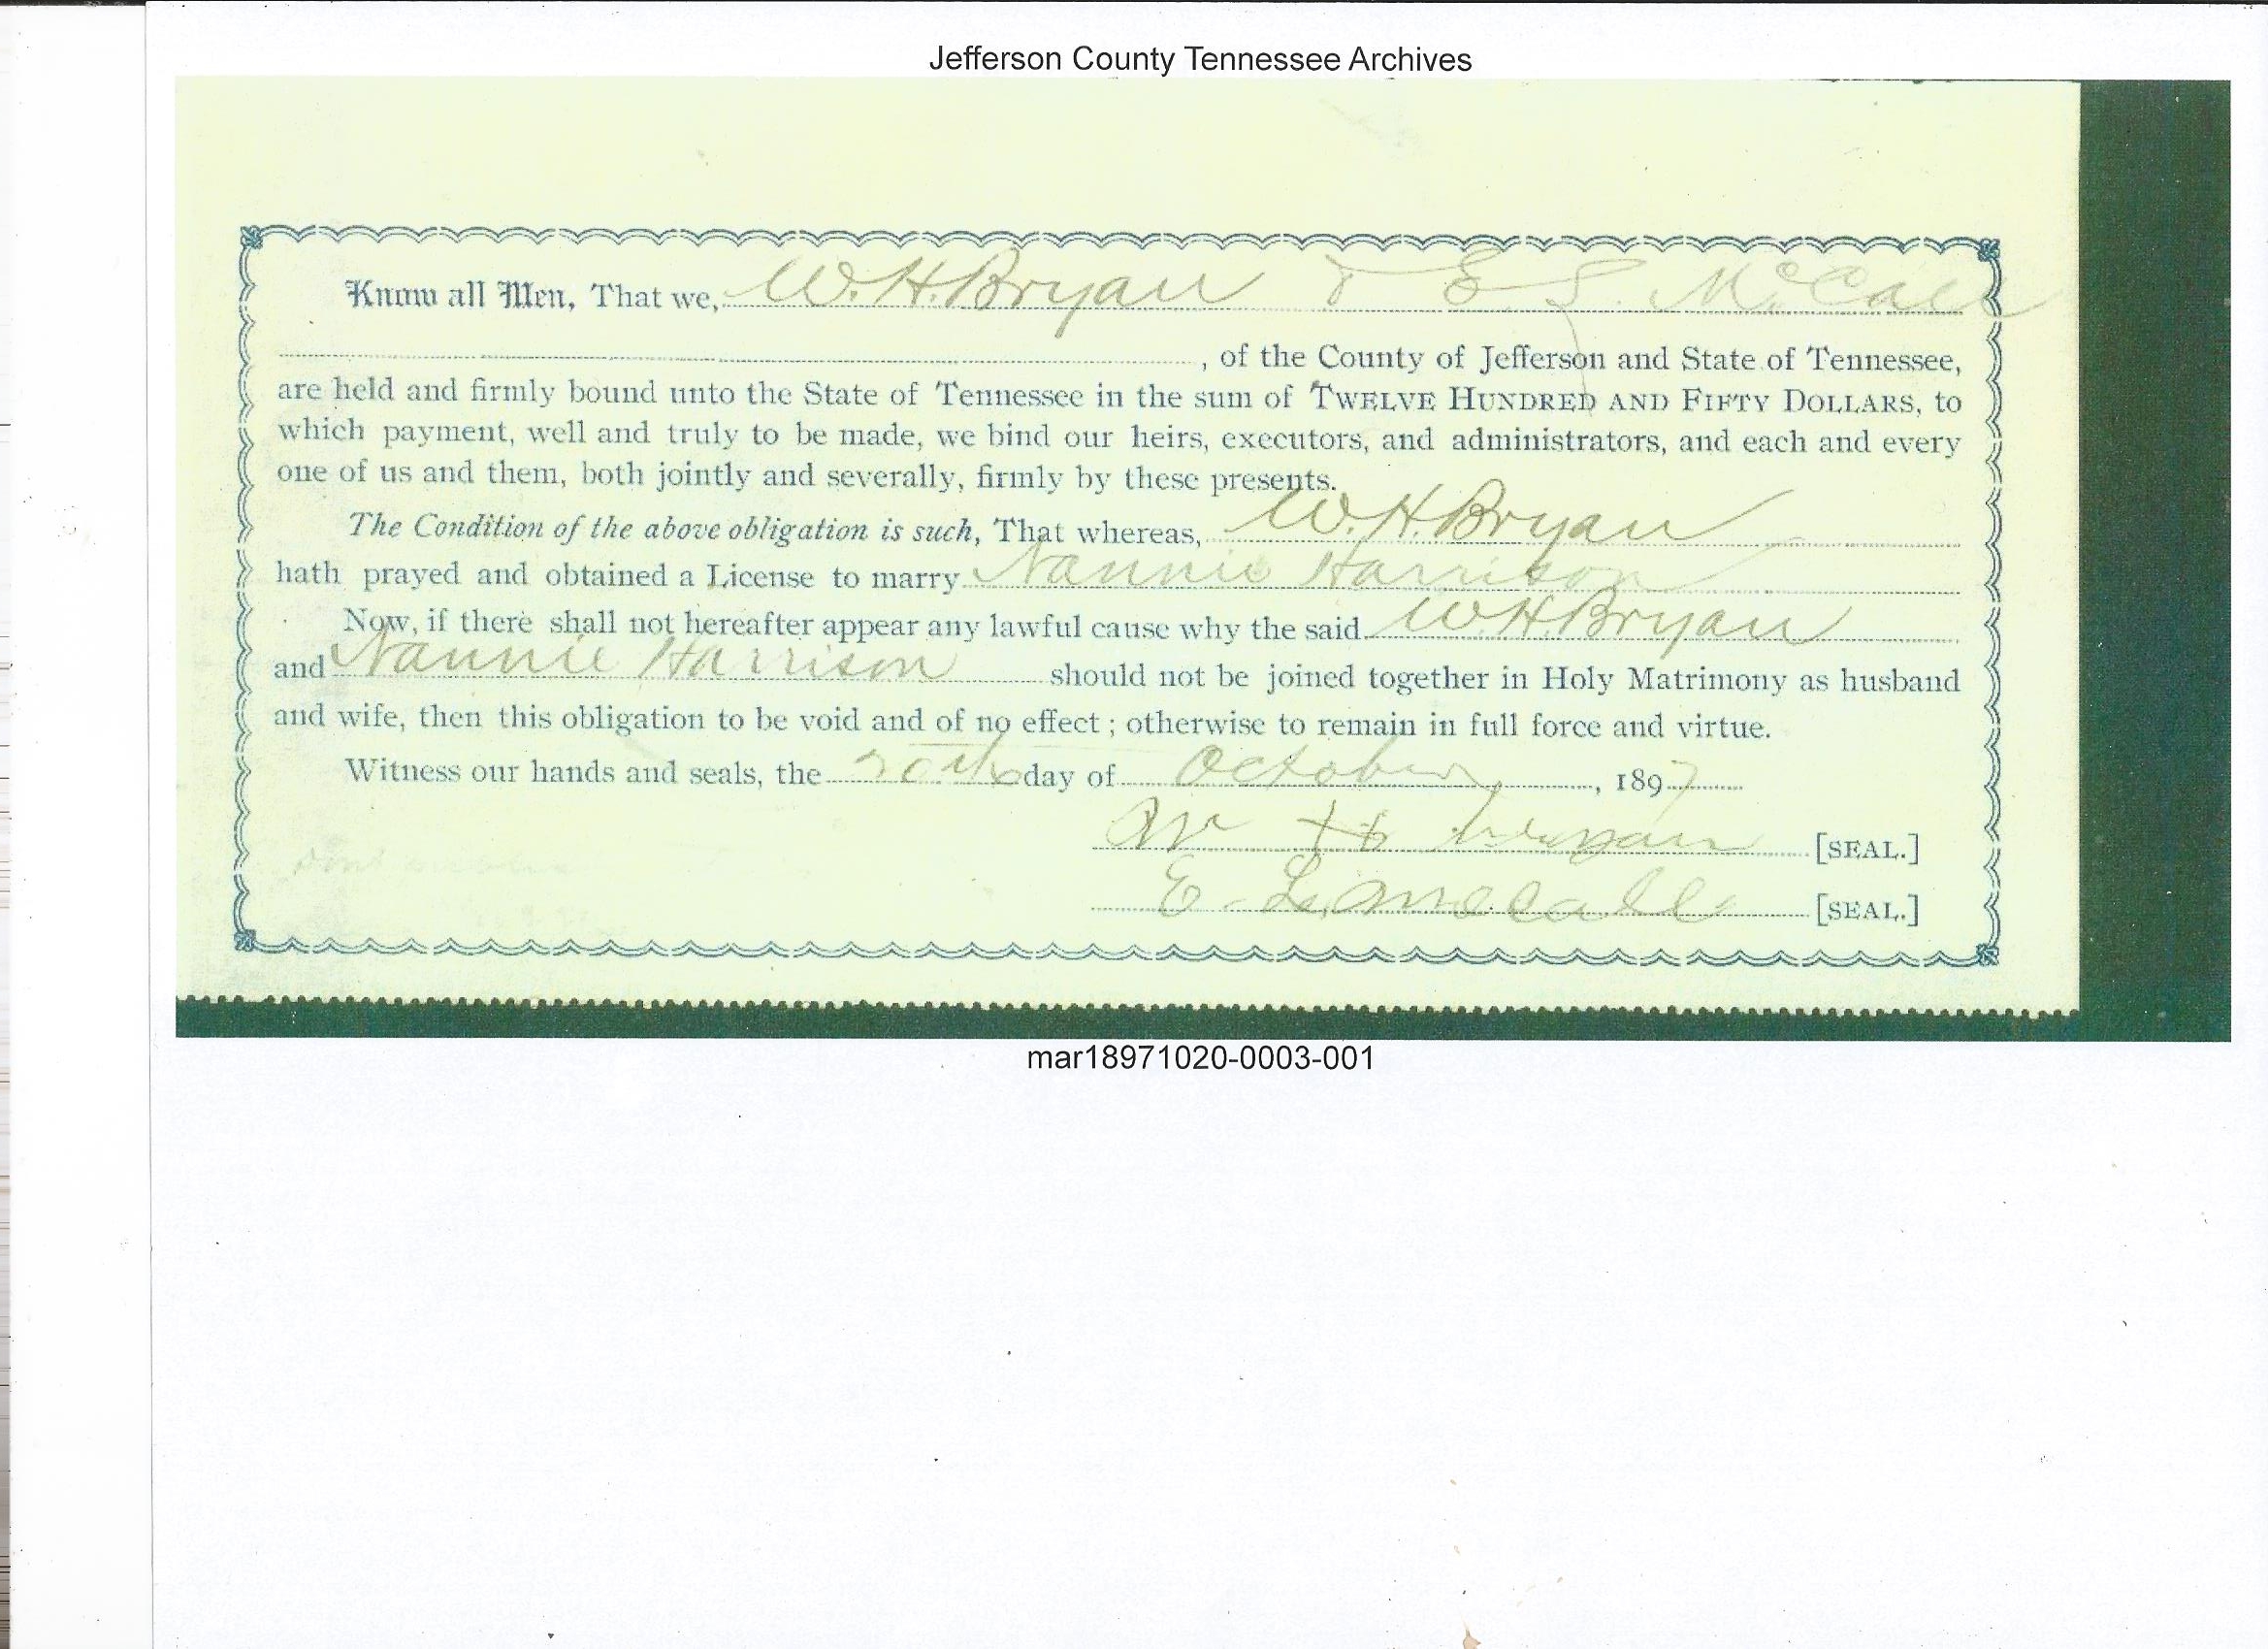 Jefferson County Tennessee Archives
Know all Men, That we, W. H. Bryan & E. L. McCall
, of the County of Jefferson and State of Tennessee,
are held and firmly bound unto the State of Tennessee in the sum of TWELVE HUNDRED AND FIFTY DOLLARS, to
which payment, well and truly to be made, we bind our heirs, executors, and administrators, and each and every
one of us and them, both jointly and severally, firmly by these presents.
The Condition of the above obligation is such, That whereas, W. H. Bryan
hath prayed and obtained a License to marry Nannie Harrison
Now, if there shall not hereafter appear any lawful cause why the said W. H. Bryan
and Nannie Harrison should not be joined together in Holy Matrimony as husband
and wife, then this obligation to be void and of no effect; otherwise to remain in full force and virtue.
Witness our hands and seals, the 20th day of October, 1897
W H bryan [SEAL.]
E. L. mccall [SEAL.]
mar18971020-0003-001